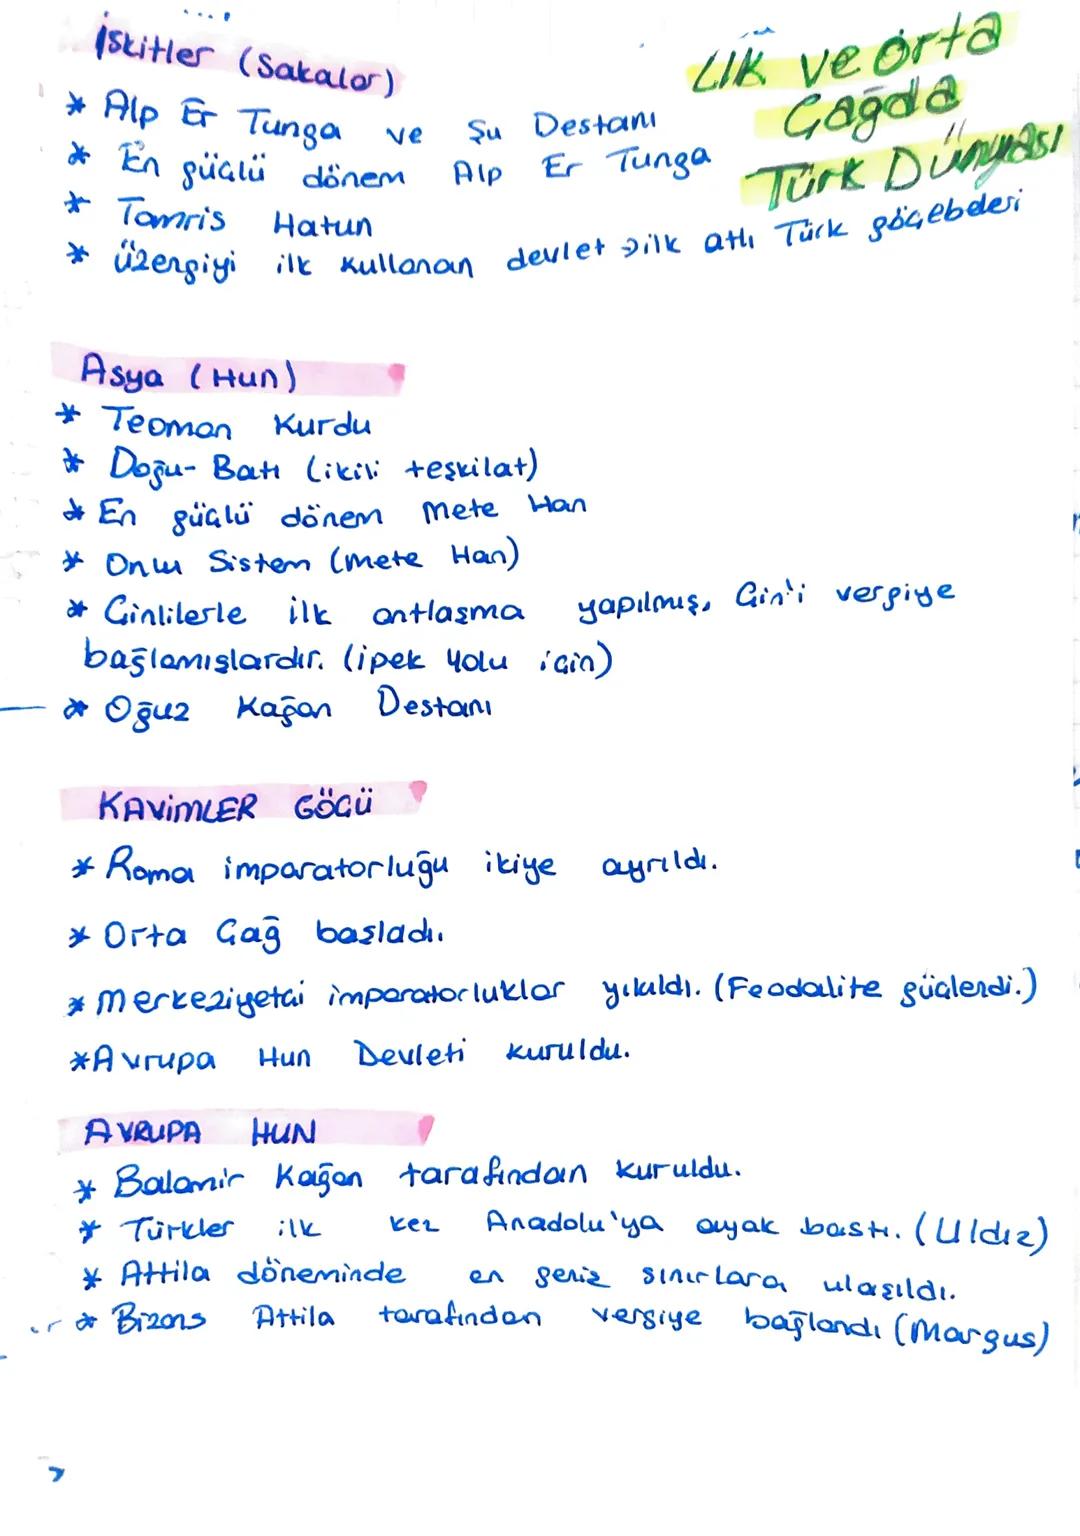 İskitler (Sakalar)
İlk ve Orta
Çağda
Türk Dünyası
* Alp Er Tunga ve Şu Destanı
* En güçlü dönem Alp Er Tunga
* Tomris Hatun
* Üzengiyi ilk kullanan devlet → ilk atlı Türk göçebeleri
Asya (Hun)
* Teoman Kurdu
* Doğu-Batı (ikili teşkilat)
* En güçlü dönem Mete Han
* Onlu Sistem (Mete Han)
* Çinlilerle ilk antlaşma yapılmış, Çin'i vergiye
bağlamışlardır. (ipek yolu için)
* Oğuz Kağan Destanı
KAVİMLER GÖÇÜ
* Roma imparatorluğu ikiye ayrıldı.
* Orta Çağ başladı.
* Merkeziyetçi imparatorluklar yıkıldı. (Feodalite güçlendi.)
* Avrupa Hun Devleti kuruldu.
AVRUPA HUN
* Balamir Kağan tarafından kuruldu.
* Türkler ilk kez Anadolu'ya ayak bastı. (Uldız)
* Attila döneminde en geniz sınırlara ulaşıldı.
* Bizans Attila tarafından vergiye bağlandı (Margus)